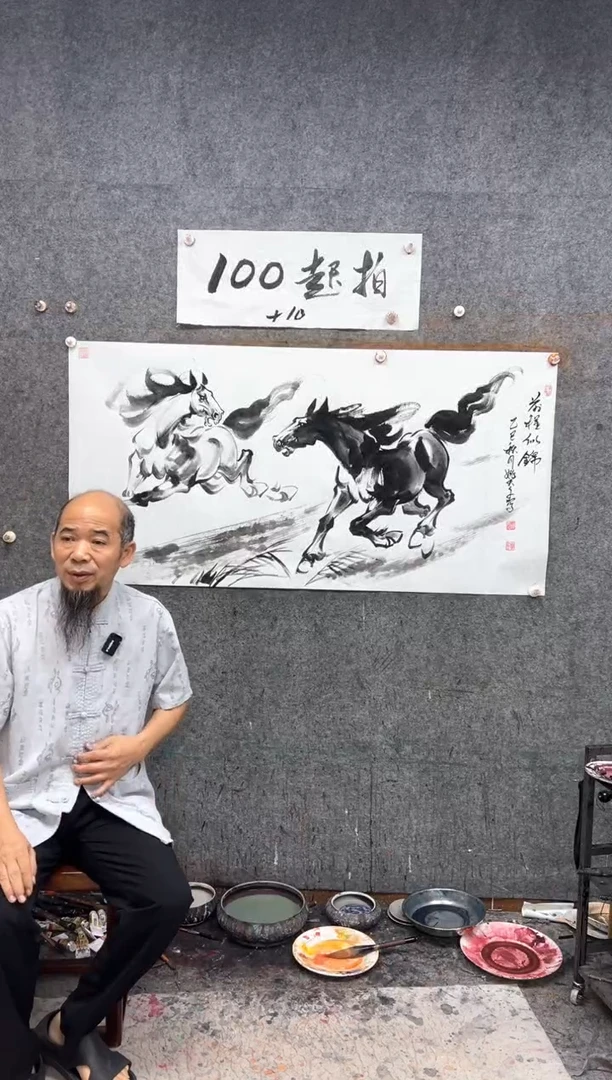 100起拍
+10
前程似錦
乙巳秋月